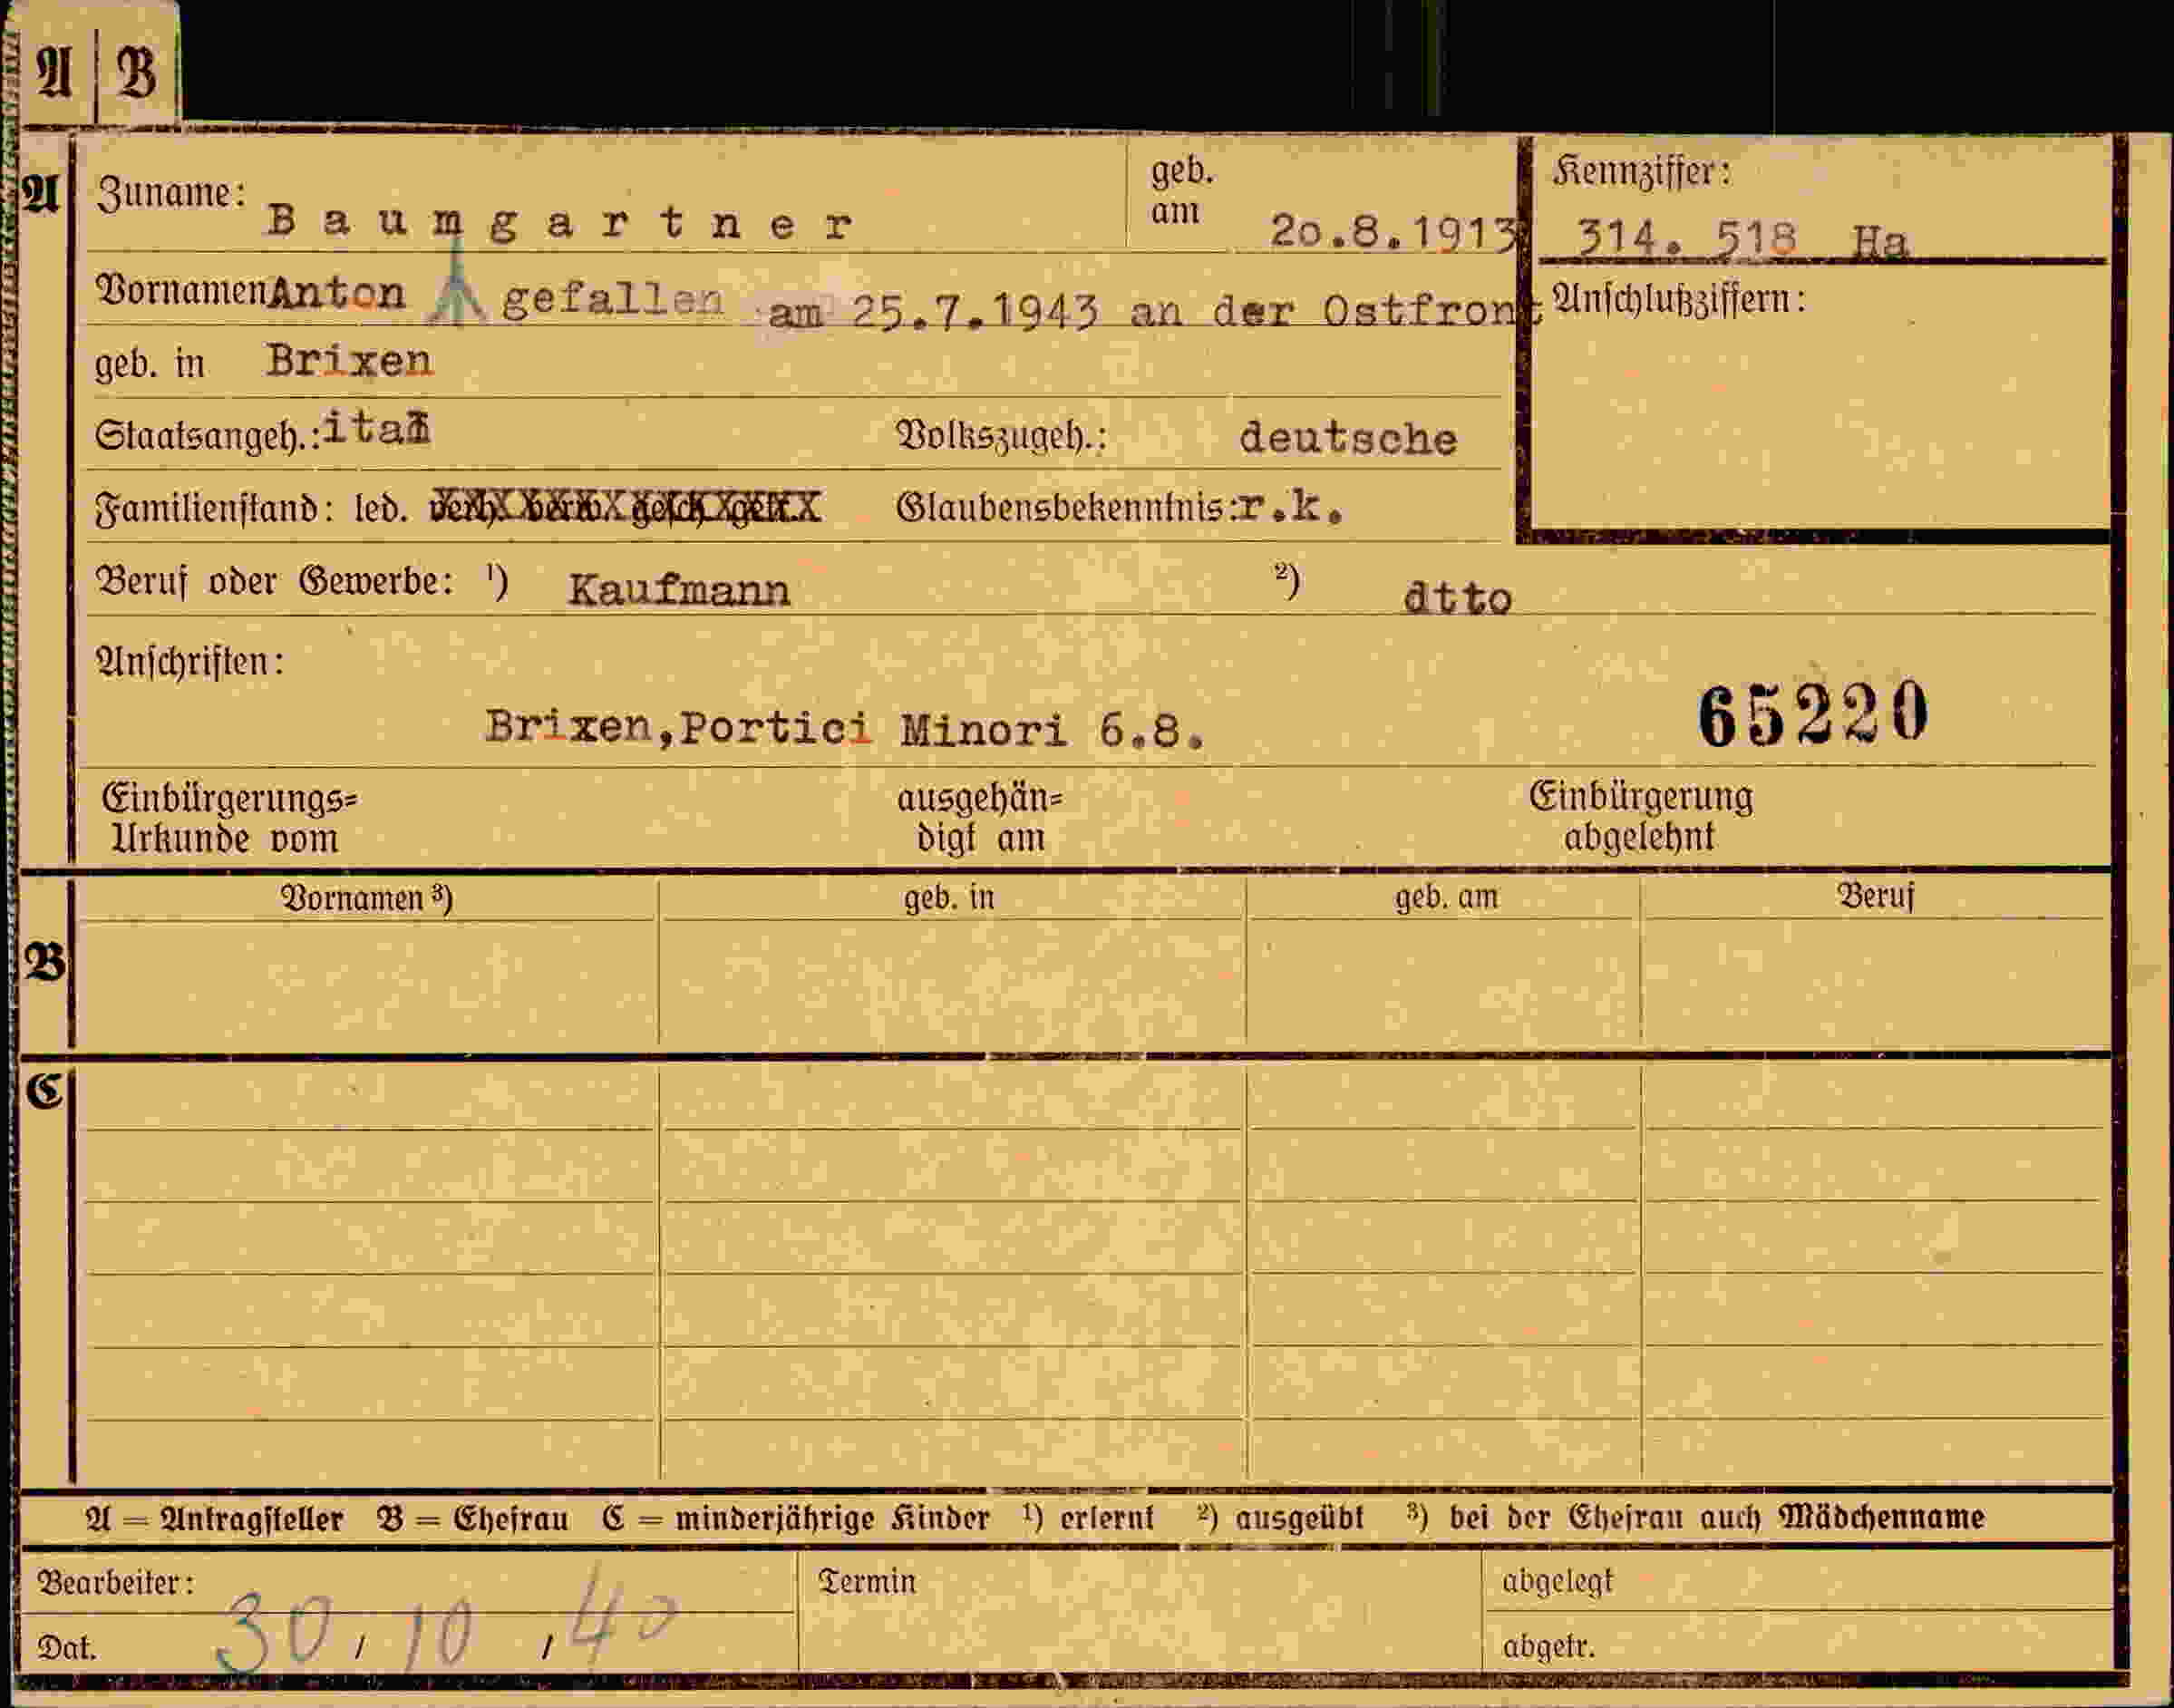 A | B
A
Zuname: Baumgartner geb. am 20.8.1913 Kennziffer: 314. 518 Ha
Vornamen Anton gefallen am 25.7.1943 an der Ostfront Anschlußziffern:
geb. in Brixen
Staatsangeh.: ital Volkszugeh.: deutsche
Familienstand: led. verh. verw. gesch. getr. Glaubensbekenntnis: r.k.
Beruf oder Gewerbe: ¹) Kaufmann ²) dtto
Anschriften:
Brixen,Portici Minori 6.8. 65220
Einbürgerungs= ausgehän= Einbürgerung
Urkunde vom digt am abgelehnt
Vornamen ³) geb. in geb. am Beruf
B
C
A = Antragsteller B = Ehefrau C = minderjährige Kinder ¹) erlernt ²) ausgeübt ³) bei der Ehefrau auch Mädchenname
Bearbeiter: Termin abgelegt
Dat. 30/10/40 abgetr.